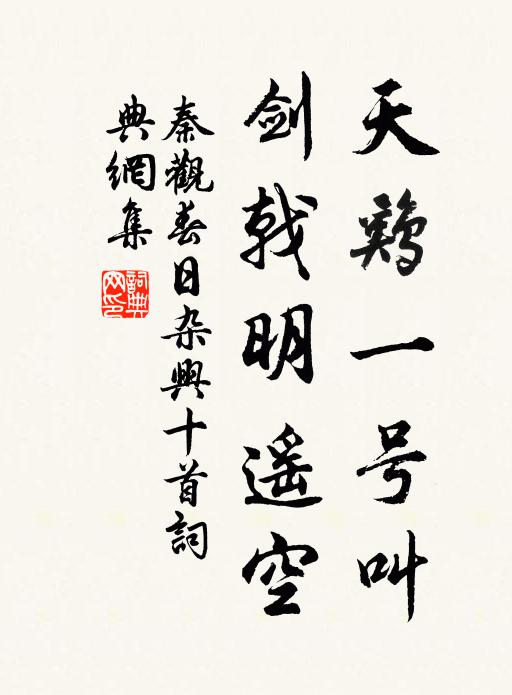 天鷄一号叫
剑戟明遥空
秦觀春日杂興十首詞
典網集
詞典
网印